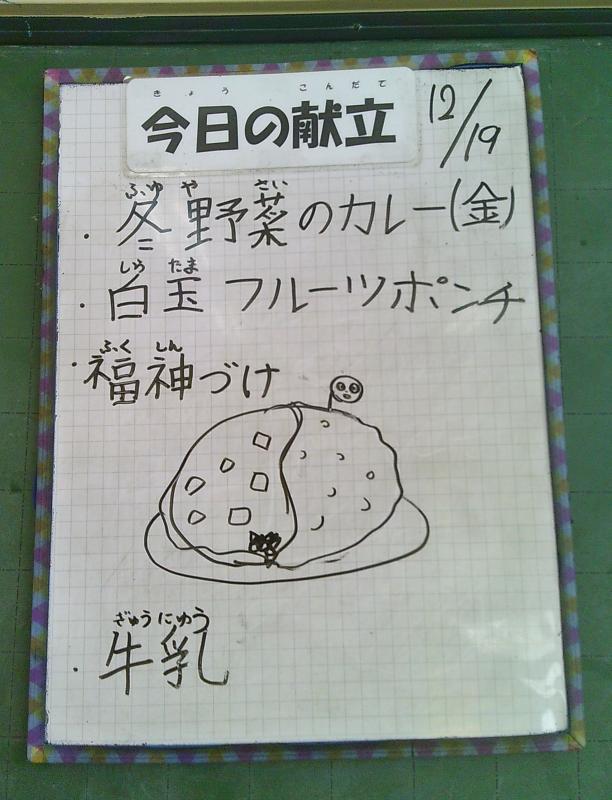 きょう こんだて
今日の献立
12/19
(金)
ふゆ や さい
・冬野菜のカレー
しら たま
・白玉フルーツポンチ
ふく しん
・福神づけ
ぎゅうにゅう
・牛乳